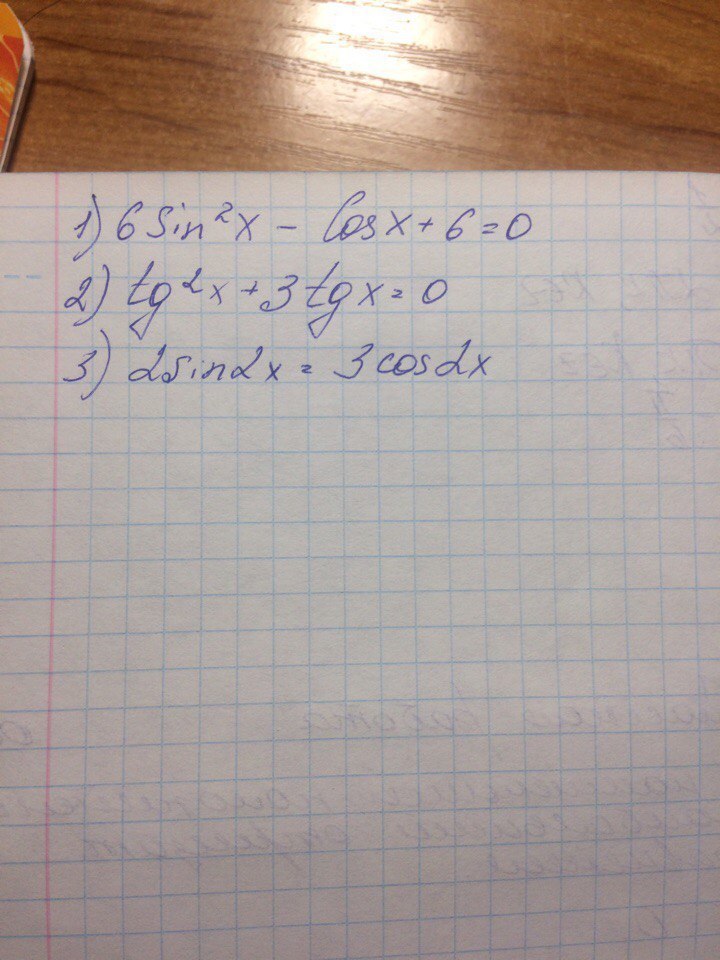 1) 6 sin²x - cosx + 6 = 0
2) tg²x + 3 tgx = 0
3) 2sin2x = 3cos2x